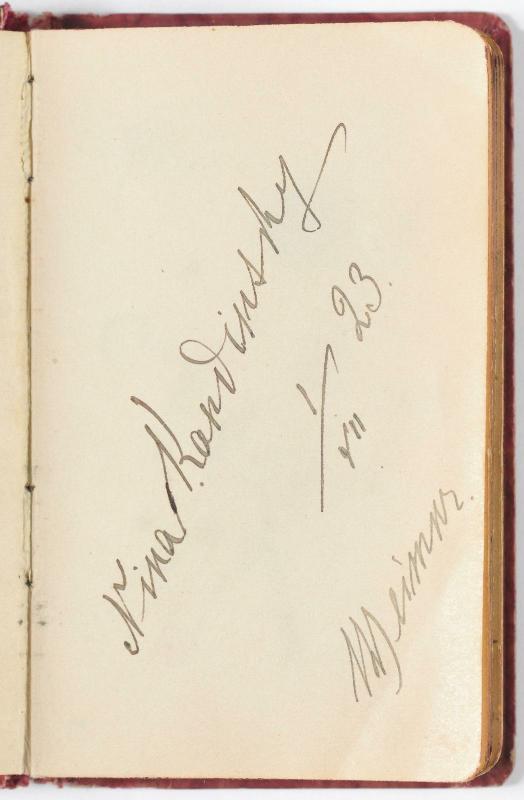 Nina Kandinsky
1/VII 23.
Weimar.